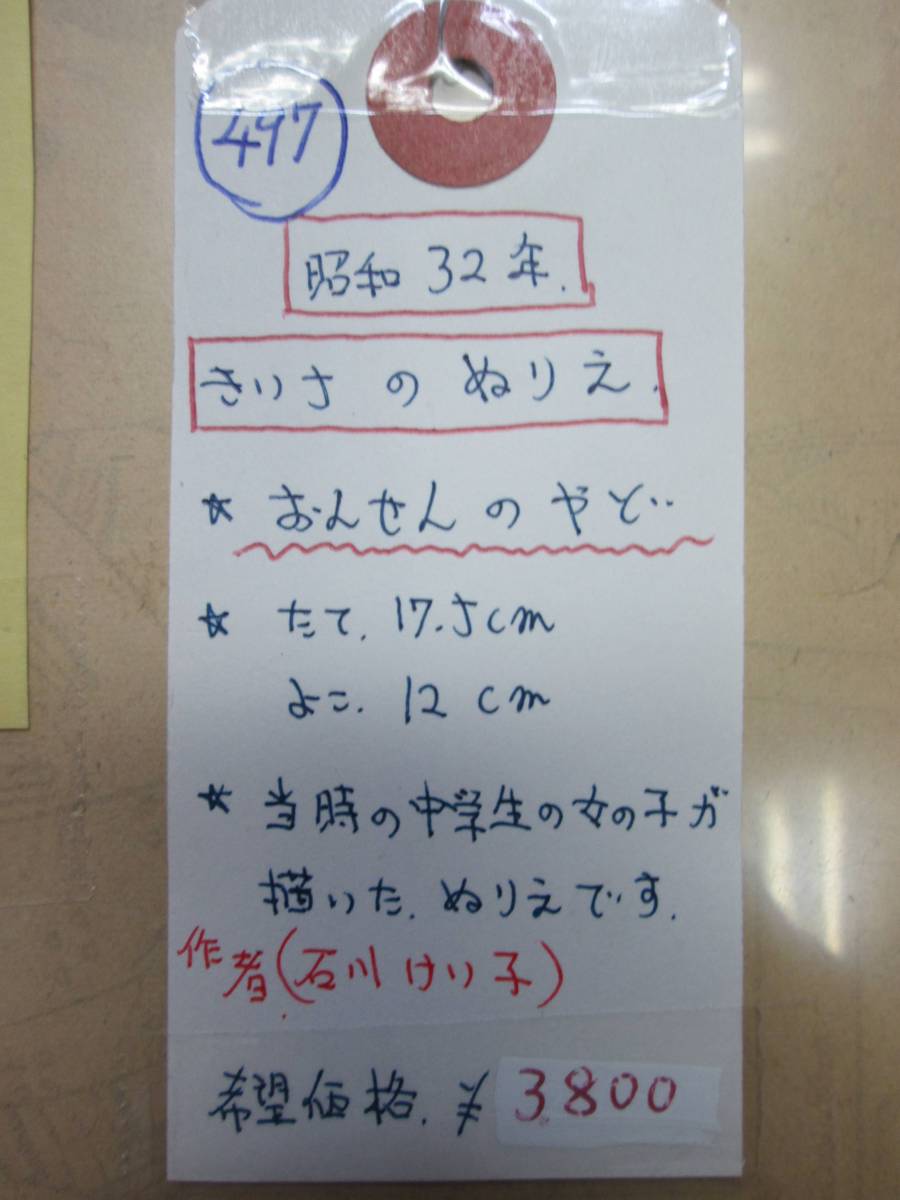 497
昭和 32年.
きいち の ぬりえ.
★ おんせん の やど..
☆ たて. 17.5cm
よこ. 12 cm
★ 当時の中学生の女の子が
描いた. ぬりえです.
作者(石川 けい子)
希望価格. ¥3800